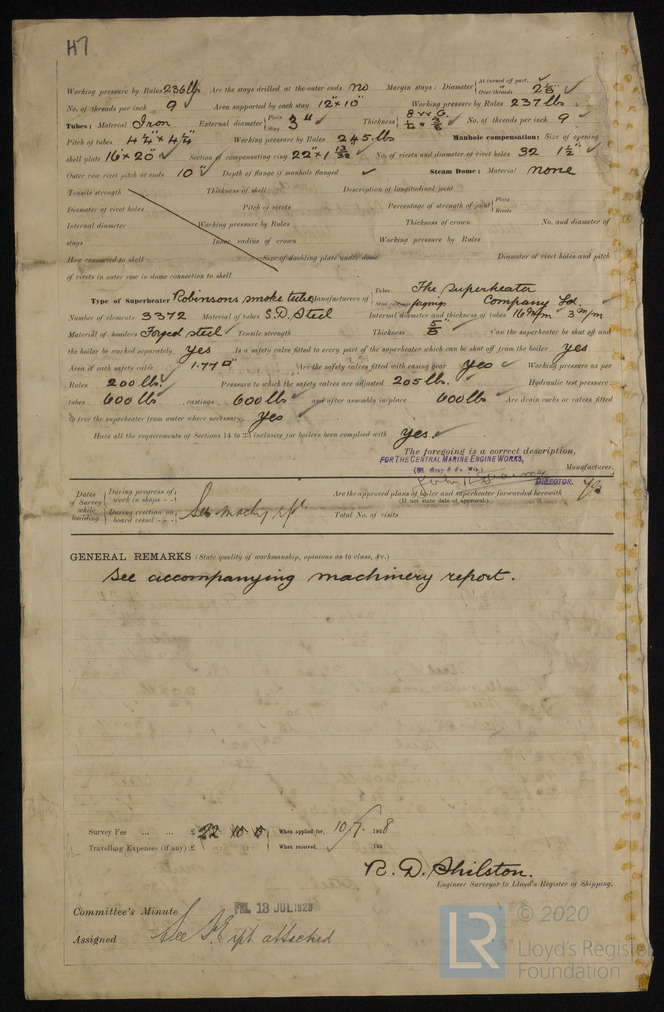 H7
Working pressure by Rules 236 lbs Are the stays drilled at the outer ends no Margin stays: Diameter { At turned off part, or Over threads 2 1/8"
No. of threads per inch 9 Area supported by each stay 12" x 10" Working pressure by Rules 237 lbs
Tubes: Material Iron External diameter { Plain Stay 3" Thickness { 8 W.G. 1/4" & 5/16 No. of threads per inch 9
Pitch of tubes 4 1/4" x 4 1/4" Working pressure by Rules 245 lbs Manhole compensation: Size of opening
shell plate 16" x 20" Section of compensating ring 22" x 1 13/32" No. of rivets and diameter of rivet holes 32 1 1/2"
Outer row rivet pitch at ends 10" Depth of flange if manhole flanged Steam Dome: Material none
Tensile strength Thickness of shell Description of longitudinal joint
Diameter of rivet holes Pitch of rivets Percentage of strength of joint { Plate Rivets
Internal diameter Working pressure by Rules Thickness of crown No. and diameter of
stays Inner radius of crown Working pressure by Rules
How connected to shell Size of doubling plate under dome Diameter of rivet holes and pitch
of rivets in outer row in dome connection to shell
Type of Superheater Robinsons smoke tube Manufacturers of { Tubes Steel forgings The Superheater Company Ld.
Number of elements 3372 Material of tubes S.D. Steel Internal diameter and thickness of tubes 16 m/m 3 m/m
Material of headers Forged steel Tensile strength Thickness 5/8" Can the superheater be shut off and
the boiler be worked separately yes Is a safety valve fitted to every part of the superheater which can be shut off from the boiler yes
Area of each safety valve 1.77 □" Are the safety valves fitted with easing gear yes Working pressure as per
Rules 200 lbs. Pressure to which the safety valves are adjusted 205 lbs. Hydraulic test pressure:
tubes 600 lbs, castings 600 lbs and after assembly in place 600 lbs Are drain cocks or valves fitted
to free the superheater from water where necessary yes
Have all the requirements of Sections 14 to 23 inclusive for boilers been complied with yes.
The foregoing is a correct description,
FOR THE CENTRAL MARINE ENGINE WORKS,
(W. Gray & Co. Ltd.) Manufacturer.
DIRECTOR.
Dates of Survey while building { During progress of work in shops - - During erection on board vessel - - - See machy rpt Are the approved plans of boiler and superheater forwarded herewith Yes
(If not state date of approval.)
Total No. of visits
GENERAL REMARKS (State quality of workmanship, opinions as to class, &c.)
See accompanying machinery report.
Survey Fee ... ... £ 22 10 0 When applied for, 10/7 1928
Travelling Expenses (if any) £ : : When received, 190
R. D. Shilston.
Engineer Surveyor to Lloyd's Register of Shipping.
Committee's Minute FRI. 13 JUL 1928
Assigned See F.E. rpt. attached
LR © 2020
Lloyd's Register
Foundation